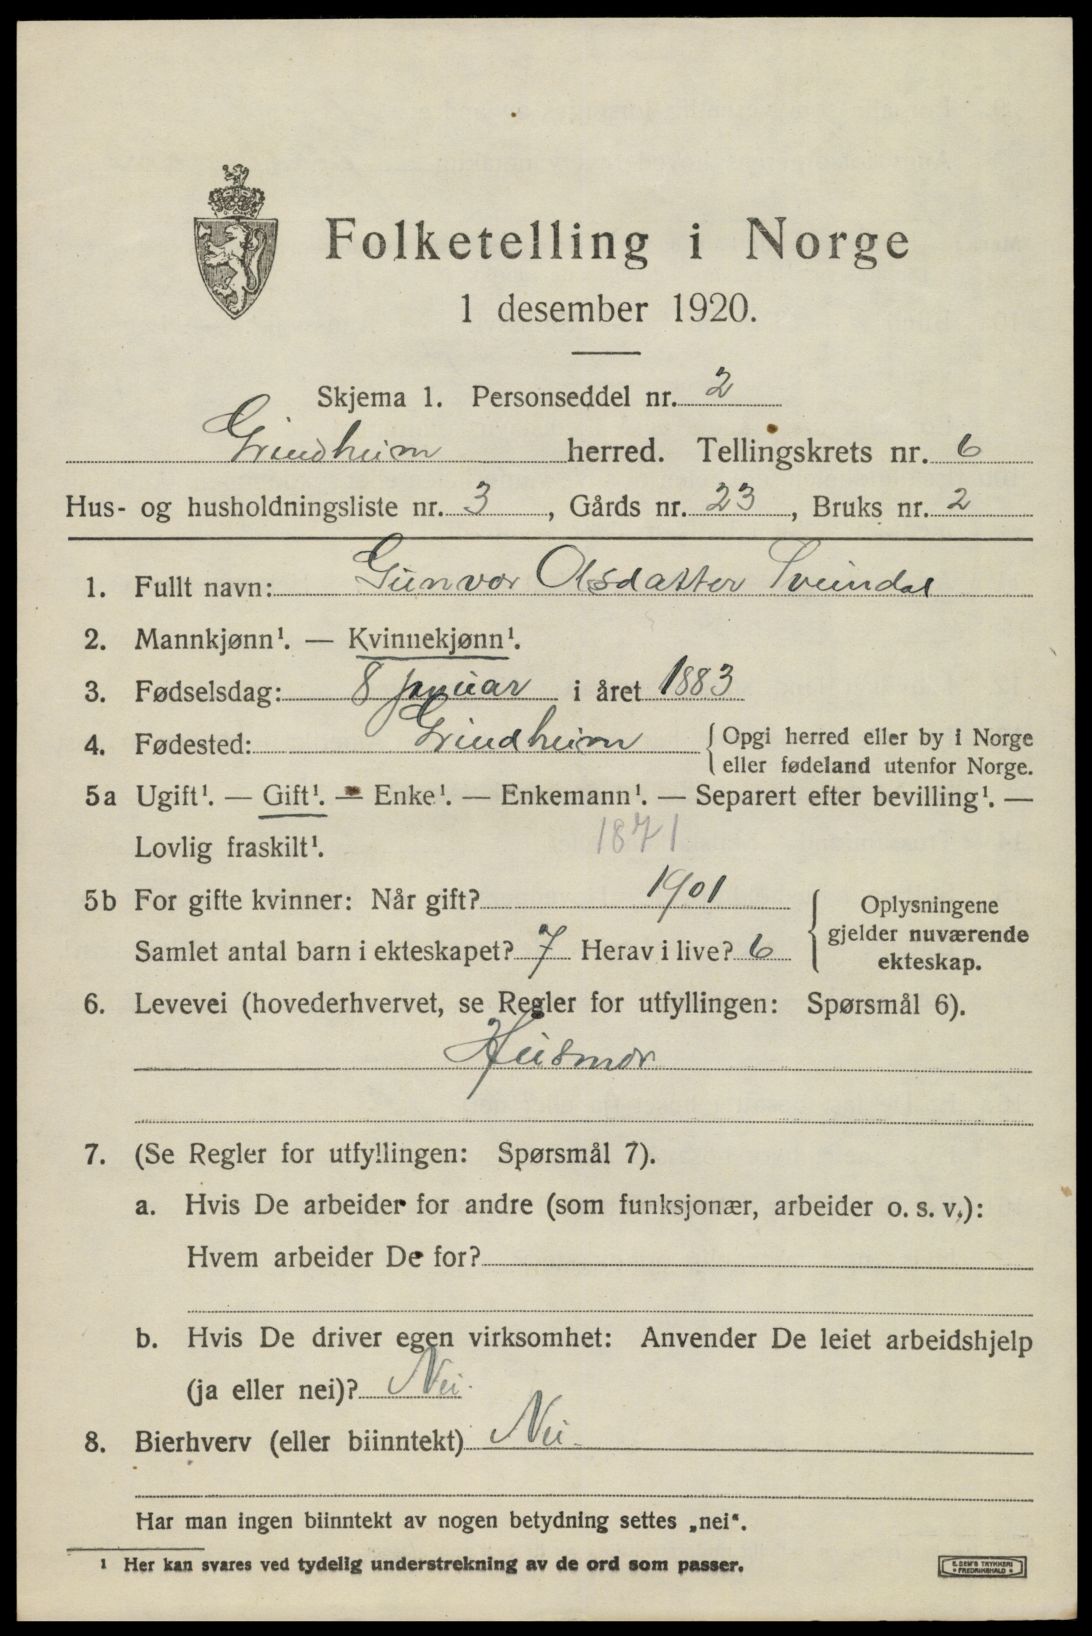 Folketelling i Norge
1 desember 1920.
Skjema 1. Personseddel nr. 2
Grindheim herred. Tellingskrets nr. 6
Hus- og husholdningsliste nr. 3, Gårds nr. 23, Bruks nr. 2
1. Fullt navn: Gunvor Olsdatter Sveindal
2. Mannkjønn¹. — Kvinnekjønn¹.
3. Fødselsdag: 8 januar i året 1883
4. Fødested: Grindheim { Opgi herred eller by i Norge
eller fødeland utenfor Norge.
5a Ugift¹. — Gift¹. — Enke¹. — Enkemann¹. — Separert efter bevilling¹. —
Lovlig fraskilt¹. 1871
5b For gifte kvinner: Når gift? 1901
Samlet antal barn i ekteskapet? 7 Herav i live? 6
{ Oplysningene
gjelder nuværende
ekteskap.
6. Levevei (hovederhvervet, se Regler for utfyllingen: Spørsmål 6).
Husmor
7. (Se Regler for utfyllingen: Spørsmål 7).
a. Hvis De arbeider for andre (som funksjonær, arbeider o. s. v.):
Hvem arbeider De for?
b. Hvis De driver egen virksomhet: Anvender De leiet arbeidshjelp
(ja eller nei)? Nei.
8. Bierhverv (eller biinntekt) Nei.
Har man ingen biinntekt av nogen betydning settes „nei“.
¹ Her kan svares ved tydelig understrekning av de ord som passer.
E. SEM'S TRYKKERI
FREDRIKSHALD